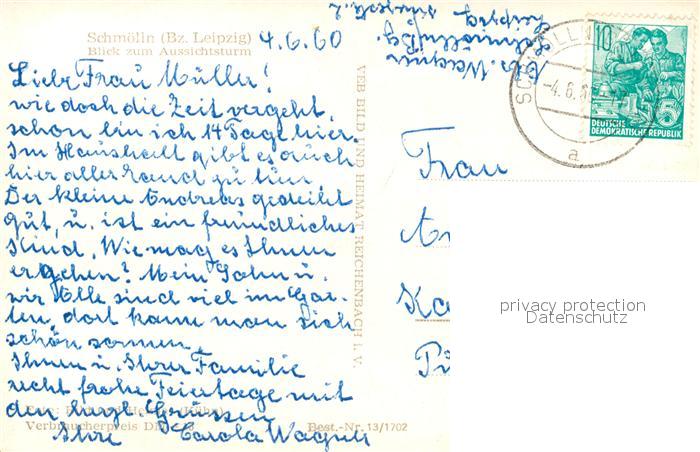 Schmölln (Bz. Leipzig)
Blick zum Aussichtsturm
4.6.60
Liebe Frau Müller!
wie doch die Zeit vergeht,
schon bin ich 14 Tage hier.
Im Haushalt gibt es auch
hier allerhand zu tun.
Der kleine Andreas gedeiht
gut, u. ist ein freundliches
Kind. Wie mag es Ihnen
ergehen? Mein Sohn u.
wir Alle sind viel im Gar-
ten, dort kann man sich
schön sonnen.
Ihnen u. Ihrer Familie
recht frohe Feiertage mit
den herzl. Grüssen
Ihre Carola Wagner
Foto:
Verbraucherpreis DM
Best.-Nr. 13/1702
VEB BILD UND HEIMAT REICHENBACH i. V.
Abs. Wagner
Schmölln/Bz.
Leipzig
10
5
DEUTSCHE
DEMOKRATISCHE REPUBLIK
SCHMÖLLN
-4.6.6
a
Frau
Ka
privacy protection
Datenschutz